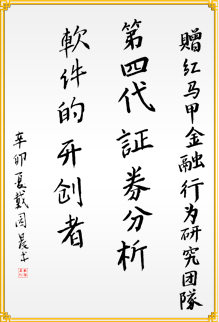 贈红马甲金融行为研究团隊
第四代証券分析
軟件的开创者
辛卯夏戴国晨书